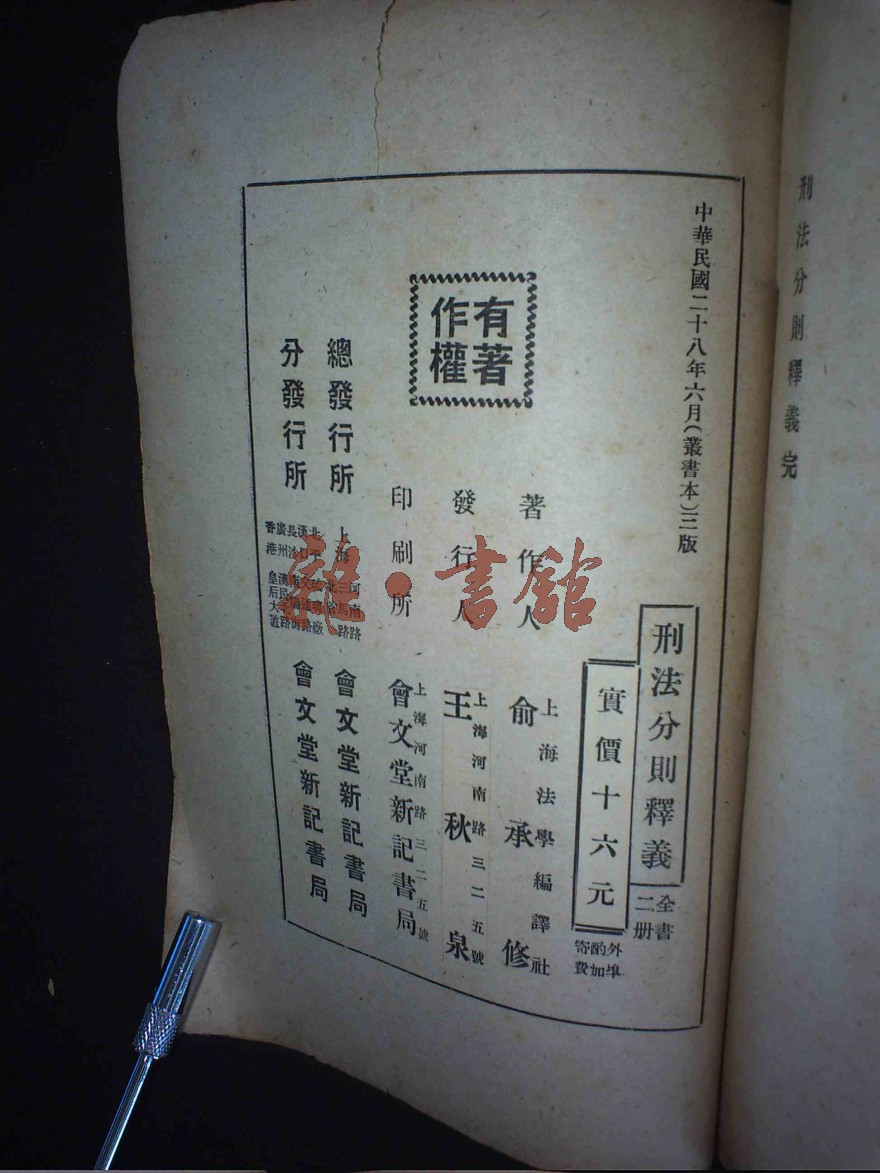 刑法分則釋義完
中華民國二十八年六月(叢書本)三版
刑法分則釋義
全書
二册
實價十六元
外埠
酌加
寄費
著作人
上海法學編譯社
俞承修
發行人
上海河南路三二五號
王秋泉
有著
作權
印刷所
上海河南路三二五號
會文堂新記書局
總發行所
上海
河南路
會文堂新記書局
分發行所
會文堂新記書局
龍•書舘